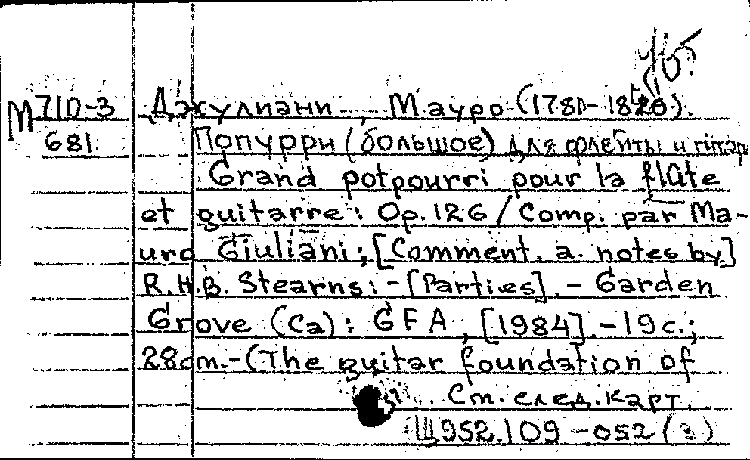 М 710-3 Джулиани, Мауро (1781-1826).
681 Попурри (большое) для флейты и гитар
Grand potpourri pour la flûte
et guitarre: Op. 126 / Comp. par Ma-
uro Giuliani; [Comment. a. notes by]
R.H.B. Stearns: - [Parties]. - Garden
Grove (Ca): GFA, [1984]. - 19 c.;
28cm. - (The guitar foundation of
См. след. карт.
Щ952.109-052(3)